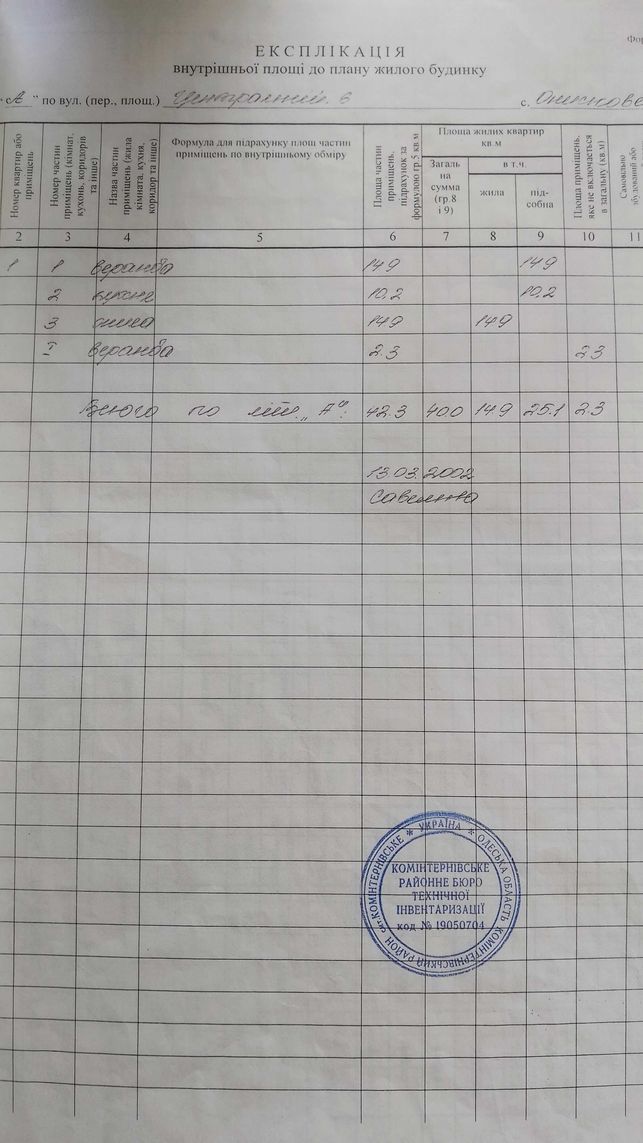 Фор
ЕКСПЛІКАЦІЯ
внутрішньої площі до плану жилого будинку
"А" по вул. (пер., площ.) Центральній 6 с.
Номер квартир або приміщень
Номер частин приміщень (кімнат, кухонь, коридорів та інше)
Назва частин приміщень (жила кімната, кухня, коридор та інше)
Формула для підрахунку площ частин приміщень по внутрішньому обміру
Площа частин приміщень, підрахунок за формулою гр.5 кв.м
Площа жилих квартир кв.м
Загальна сумма (гр.8 і 9)
в т.ч.
жила
підсобна
Площа приміщень, яке не включається в загальну (кв.м)
Самовільно збудований або
2 3 4 5 6 7 8 9 10 11
1 1 веранда 14.9 14.9
2 кухня 10.2 10.2
3 жила 14.9 14.9
I веранда 2.3 2.3
Всього по літ. "А": 42.3 40.0 14.9 25.1 2.3
13.03.2002
УКРАЇНА * ОДЕСЬКА ОБЛАСТЬ КОМІНТЕРНІВСЬКИЙ РАЙОН смт.КОМІНТЕРНІВСЬКЕ *
КОМІНТЕРНІВСЬКЕ
РАЙОННЕ БЮРО
ТЕХНІЧНОЇ
ІНВЕНТАРИЗАЦІЇ
код № 19050704